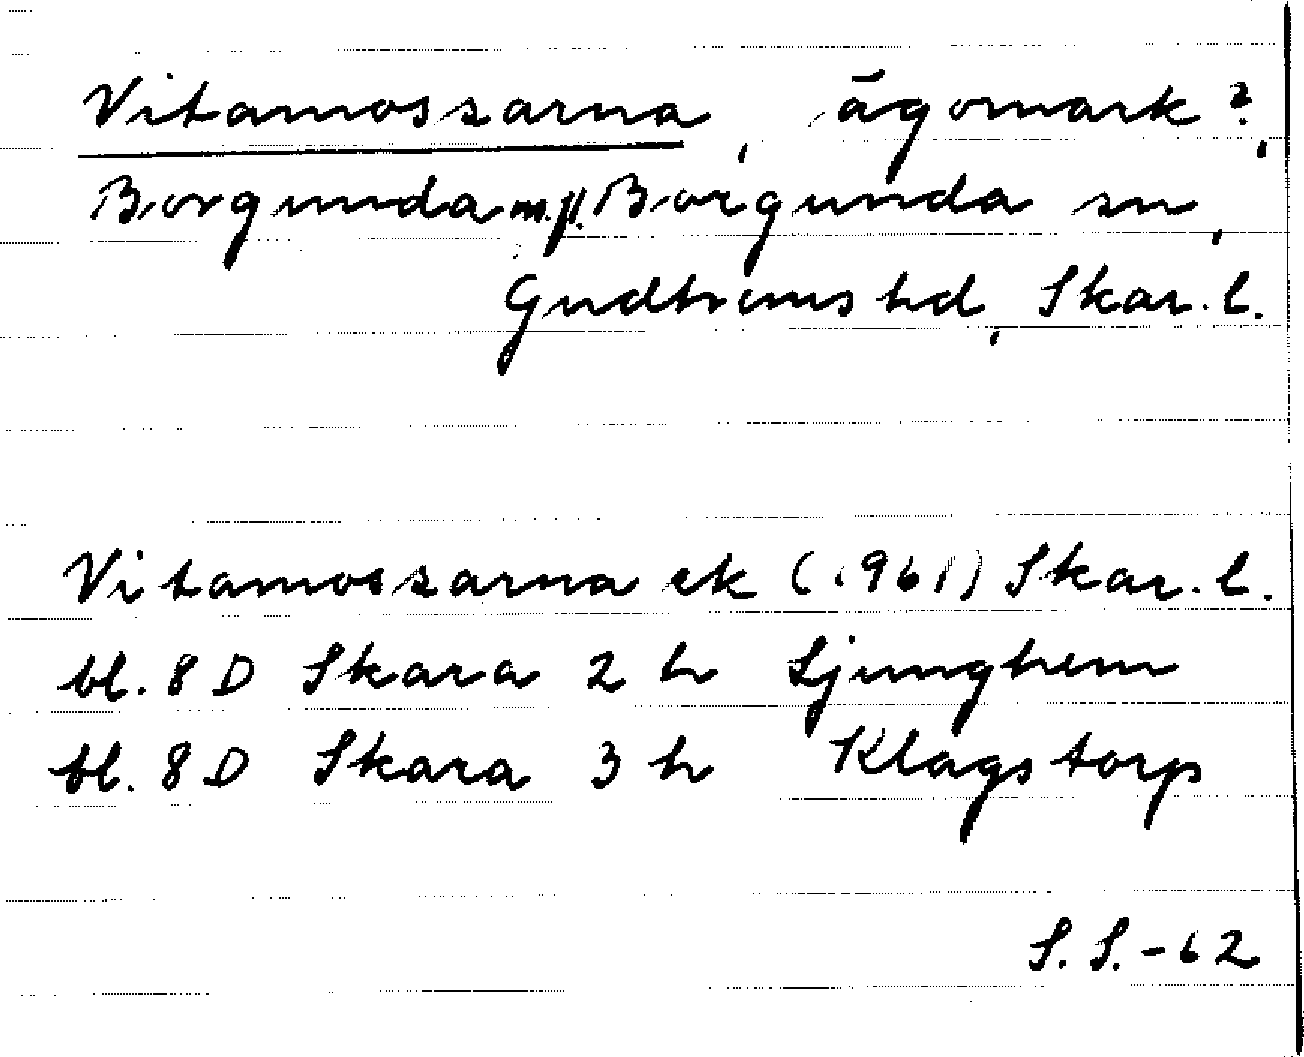 Vitamossarna, ägomark?,
Borgunda m.fl. Borgunda sn,
Gudhems hd, Skar. l.
Vitamossarna ek (1961) Skar. l.
bl. 8 D Skara 2 h Ljunghem
bl. 8 D Skara 3 h Klagstorp
S. S. -62